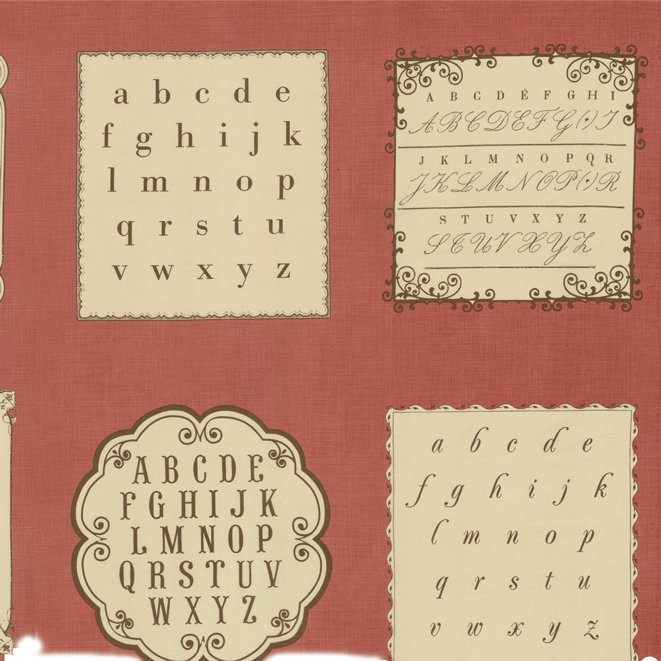 a b c d e
f g h i j k
l m n o p
q r s t u
v w x y z
A B C D É F G H I
A B C D E F G H I
J K L M N O P Q R
J K L M N O P Q R
S T U V X Y Z
S T U V X Y Z
A B C D E
F G H I J K
L M N O P
Q R S T U V
W X Y Z
a b c d e
f g h i j k
l m n o p
q r s t u
v w x y z